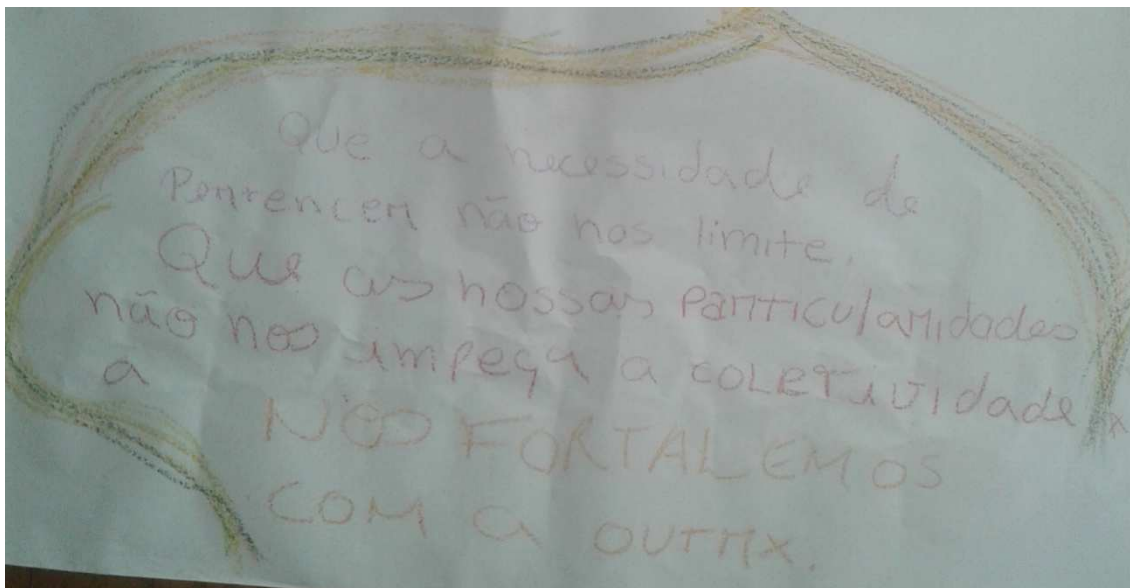 Que a necessidade de
Pentencer não nos limite.
Que as nossas particulARidades
não nos impeça a coletividade
a
NOS FORTALEMOS
COM a OUTRX.